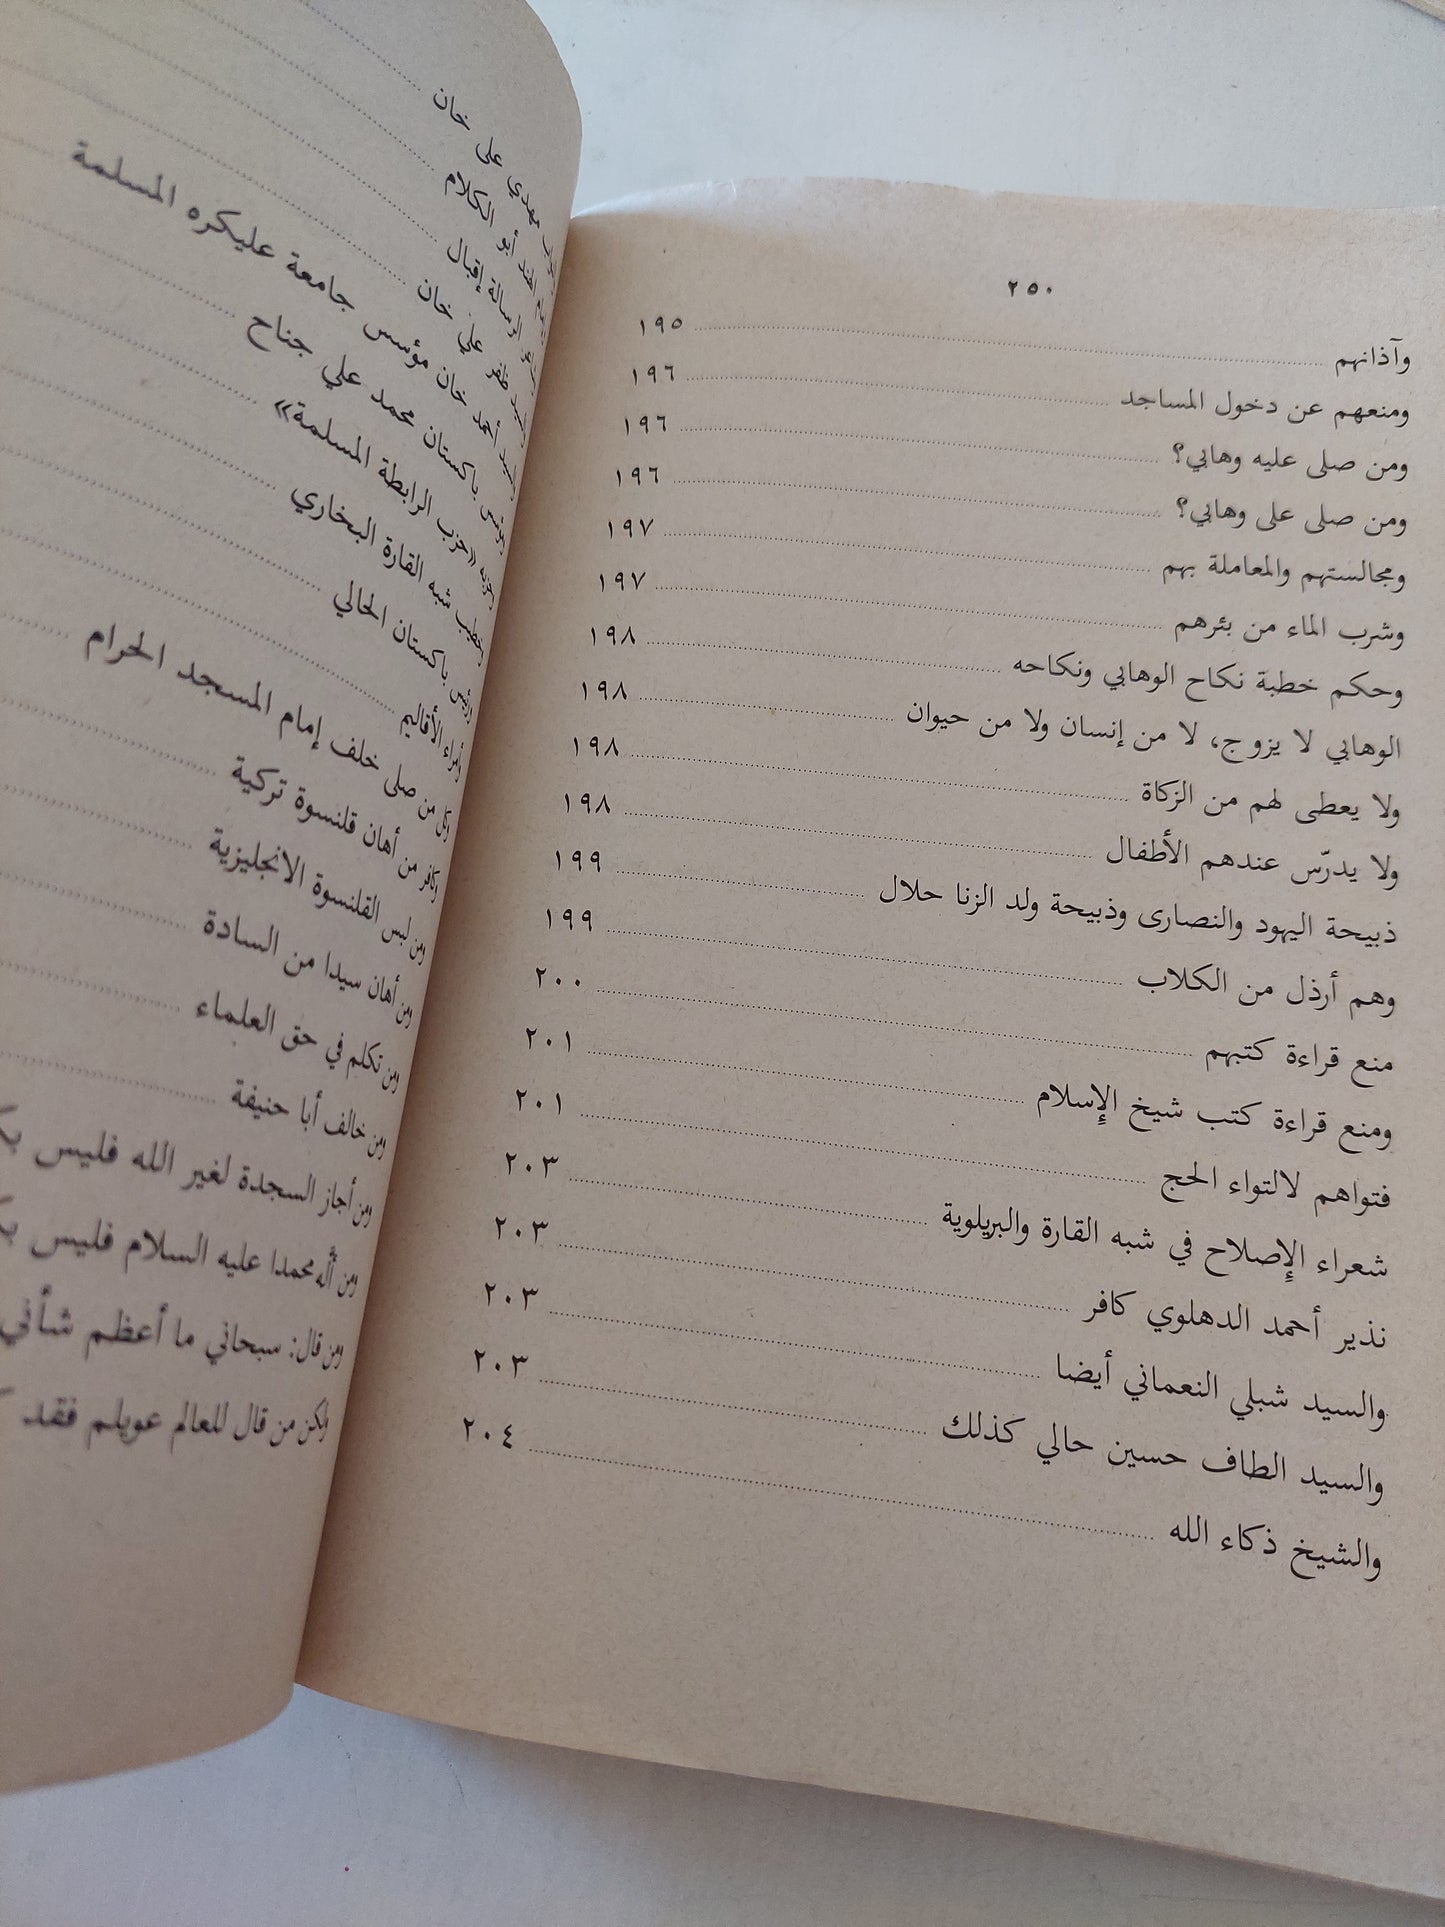 ٢٥٠
وآذانهم ........ ١٩٥
ومنعهم عن دخول المساجد ........ ١٩٦
ومن صلى عليه وهابي؟ ........ ١٩٦
ومن صلى على وهابي؟ ........ ١٩٦
ومجالستهم والمعاملة بهم ........ ١٩٧
وشرب الماء من بئرهم ........ ١٩٧
وحكم خطبة نكاح الوهابي ونكاحه ........ ١٩٨
الوهابي لا يزوج، لا من إنسان ولا من حيوان ........ ١٩٨
ولا يعطى لهم من الزكاة ........ ١٩٨
ولا يدرّس عندهم الأطفال ........ ١٩٨
ذبيحة اليهود والنصارى وذبيحة ولد الزنا حلال ........ ١٩٩
وهم أرذل من الكلاب ........ ١٩٩
منع قراءة كتبهم ........ ٢٠٠
ومنع قراءة كتب شيخ الإسلام ........ ٢٠١
فتواهم لالتواء الحج ........ ٢٠١
شعراء الإصلاح في شبه القارة والبريلوية ........ ٢٠٣
نذير أحمد الدهلوي كافر ........ ٢٠٣
والسيد شبلي النعماني أيضا ........ ٢٠٣
والسيد الطاف حسين حالي كذلك ........ ٢٠٣
والشيخ ذكاء الله ........ ٢٠٤
مهدي على خان ........
الهند أبو الكلام ........
الرسالة إقبال ........
ظفر علي خان ........
أحمد خان مؤسس جامعة عليكره المسلمة
باكستان محمد علي جناح ........
«حزب الرابطة المسلمة» ........
شبه القارة البخاري ........
باكستان الحالي ........
وأمراء الأقاليم ........
وكل من صلى خلف إمام المسجد الحرام ........
وكافر من أهان قلنسوة تركية ........
ومن لبس القلنسوة الانجليزية ........
ومن أهان سيدا من السادة ........
ومن تكلم في حق العلماء ........
ومن خالف أبا حنيفة ........
ومن أجاز السجدة لغير الله فليس
ومن أله محمدا عليه السلام فليس
ومن قال: سبحاني ما أعظم شأني
ولكن من قال للعالم عويلم فقد